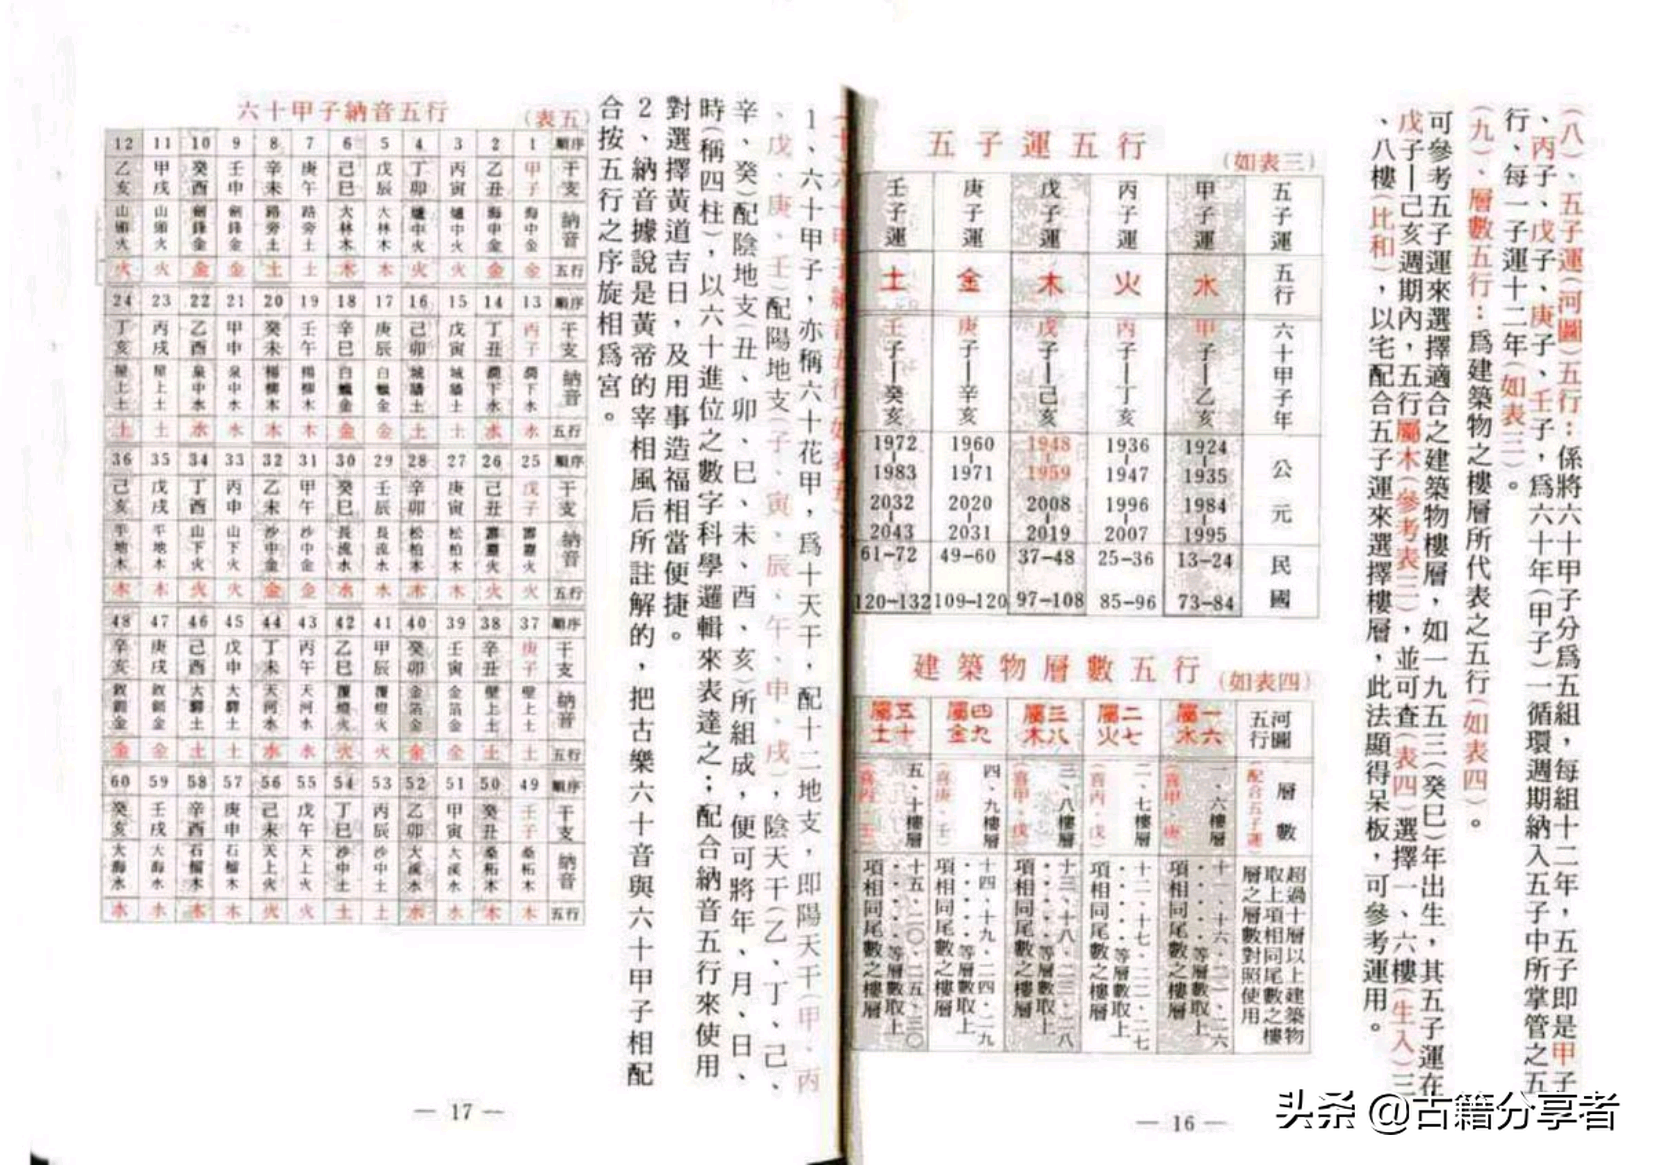 (八)、五子運(河圖)五行：係將六十甲子分爲五組，每組十二年，五子即是甲子
、丙子、戊子、庚子、壬子，爲六十年(甲子)一循環週期納入五子中所掌管之五
行、每一子運十二年(如表三)。
(九)、層數五行：爲建築物之樓層所代表之五行(如表四)。
可參考五子運來選擇適合之建築物樓層，如一九五三(癸巳)年出生，其五子運在
戊子—己亥週期內，五行屬木(參考表三)，並可查(表四)選擇一、六樓(生入)三
、八樓(比和)，以宅配合五子運來選擇樓層，此法顯得呆板，可參考運用。
五子運五行 (如表三)
五子運 甲子運 丙子運 戊子運 庚子運 壬子運
五行 水 火 木 金 土
六十甲子年 甲子—乙亥 丙子—丁亥 戊子—己亥 庚子—辛亥 壬子—癸亥
公元
1924—1935 1936—1947 1948—1959 1960—1971 1972—1983
1984—1995 1996—2007 2008—2019 2020—2031 2032—2043
民國
13-24 25-36 37-48 49-60 61-72
73-84 85-96 97-108 109-120 120-132
建築物層數五行 (如表四)
河圖五行 一六屬水 二七屬火 三八屬木 四九屬金 五十屬土
層數(配合五子運)
一、六樓層(喜甲、庚)
二、七樓層(喜丙、戊)
三、八樓層(喜甲、戊)
四、九樓層(喜庚、壬)
五、十樓層(喜丙、壬)
超過十層以上建築物
取上項相同尾數之樓
層之層數對照使用
十一、十六、二一、二六
‧‧‧‧等層數取上
項相同尾數之樓層
十二、十七、二二、二七
‧‧‧‧等層數取上
項相同尾數之樓層
十三、十八、二三、二八
‧‧‧‧等層數取上
項相同尾數之樓層
十四、十九、二四、二九
‧‧‧‧等層數取上
項相同尾數之樓層
十五、二〇、二五、三〇
‧‧‧‧等層數取上
項相同尾數之樓層
— 16 —
1、六十甲子，亦稱六十花甲，爲十天干，配十二地支，即陽天干(甲、丙
、戊、庚、壬)配陽地支(子、寅、辰、午、申、戌)，陰天干(乙、丁、己、
辛、癸)配陰地支(丑、卯、巳、未、酉、亥)所組成，便可將年、月、日、
時(稱四柱)，以六十進位之數字科學邏輯來表達之；配合納音五行來使用
對選擇黃道吉日，及用事造福相當便捷。
2、納音據說是黃帝的宰相風后所註解的，把古樂六十音與六十甲子相配
合按五行之序旋相爲宮。
六十甲子納音五行 (表五)
順序 1 2 3 4 5 6 7 8 9 10 11 12
干支 甲子 乙丑 丙寅 丁卯 戊辰 己巳 庚午 辛未 壬申 癸酉 甲戌 乙亥
納音 海中金 海中金 爐中火 爐中火 大林木 大林木 路旁土 路旁土 劍鋒金 劍鋒金 山頭火 山頭火
五行 金 金 火 火 木 木 土 土 金 金 火 火
順序 13 14 15 16 17 18 19 20 21 22 23 24
干支 丙子 丁丑 戊寅 己卯 庚辰 辛巳 壬午 癸未 甲申 乙酉 丙戌 丁亥
納音 澗下水 澗下水 城牆土 城牆土 白蠟金 白蠟金 楊柳木 楊柳木 泉中水 泉中水 屋上土 屋上土
五行 水 水 土 土 金 金 木 木 水 水 土 土
順序 25 26 27 28 29 30 31 32 33 34 35 36
干支 戊子 己丑 庚寅 辛卯 壬辰 癸巳 甲午 乙未 丙申 丁酉 戊戌 己亥
納音 霹靂火 霹靂火 松柏木 松柏木 長流水 長流水 沙中金 沙中金 山下火 山下火 平地木 平地木
五行 火 火 木 木 水 水 金 金 火 火 木 木
順序 37 38 39 40 41 42 43 44 45 46 47 48
干支 庚子 辛丑 壬寅 癸卯 甲辰 乙巳 丙午 丁未 戊申 己酉 庚戌 辛亥
納音 壁上土 壁上土 金箔金 金箔金 覆燈火 覆燈火 天河水 天河水 大驛土 大驛土 釵釧金 釵釧金
五行 土 土 金 金 火 火 水 水 土 土 金 金
順序 49 50 51 52 53 54 55 56 57 58 59 60
干支 壬子 癸丑 甲寅 乙卯 丙辰 丁巳 戊午 己未 庚申 辛酉 壬戌 癸亥
納音 桑柘木 桑柘木 大溪水 大溪水 沙中土 沙中土 天上火 天上火 石榴木 石榴木 大海水 大海水
五行 木 木 水 水 土 土 火 火 木 木 水 水
— 17 —
头条 @古籍分享者